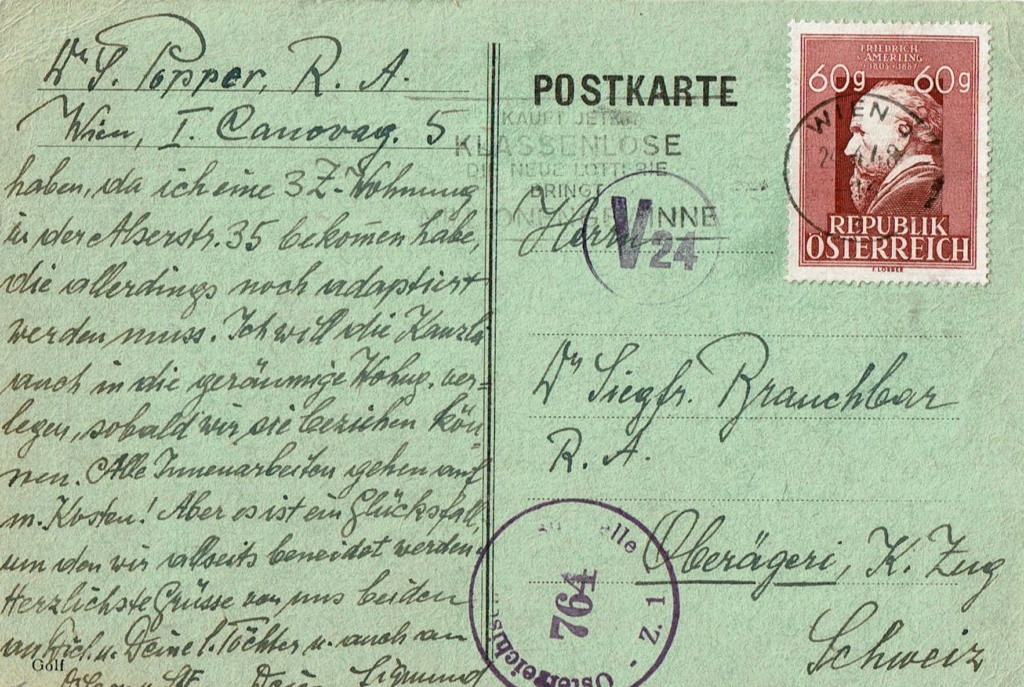 Dr S. Popper, R. A.
Wien, I. Canovag. 5
haben, da ich eine 3 Z-Wohnung
in der Alserstr. 35 bekom̄en habe,
die allerdings noch adaptiert
werden muss. Ich will die Kanzlei
auch in die geräumige Wohng. ver=
legen, sobald wir sie beziehen kön
nen. Alle Innenarbeiten gehen auf
m. Kosten! Aber es ist ein Glücksfall,
um den wir allseits beneidet werden.
Herzlichste Grüsse von uns beiden
an Dich u. Deine l. Töchter u. auch an
Sigmund
Golf
POSTKARTE
KAUFT JETZT
KLASSENLOSE
DIE NEUE LOTTERIE
BRINGT
INNE
Herrn
V24
Dr Siegfr. Brauchbar
R. A.
Oberägeri, K. Zug
Schweiz
FRIEDRICH
v. AMERLING
1803-1887
60g 60g
WIEN
REPUBLIK
ÖSTERREICH
F. LORBER
elle
764
Österreichis
Z. 1